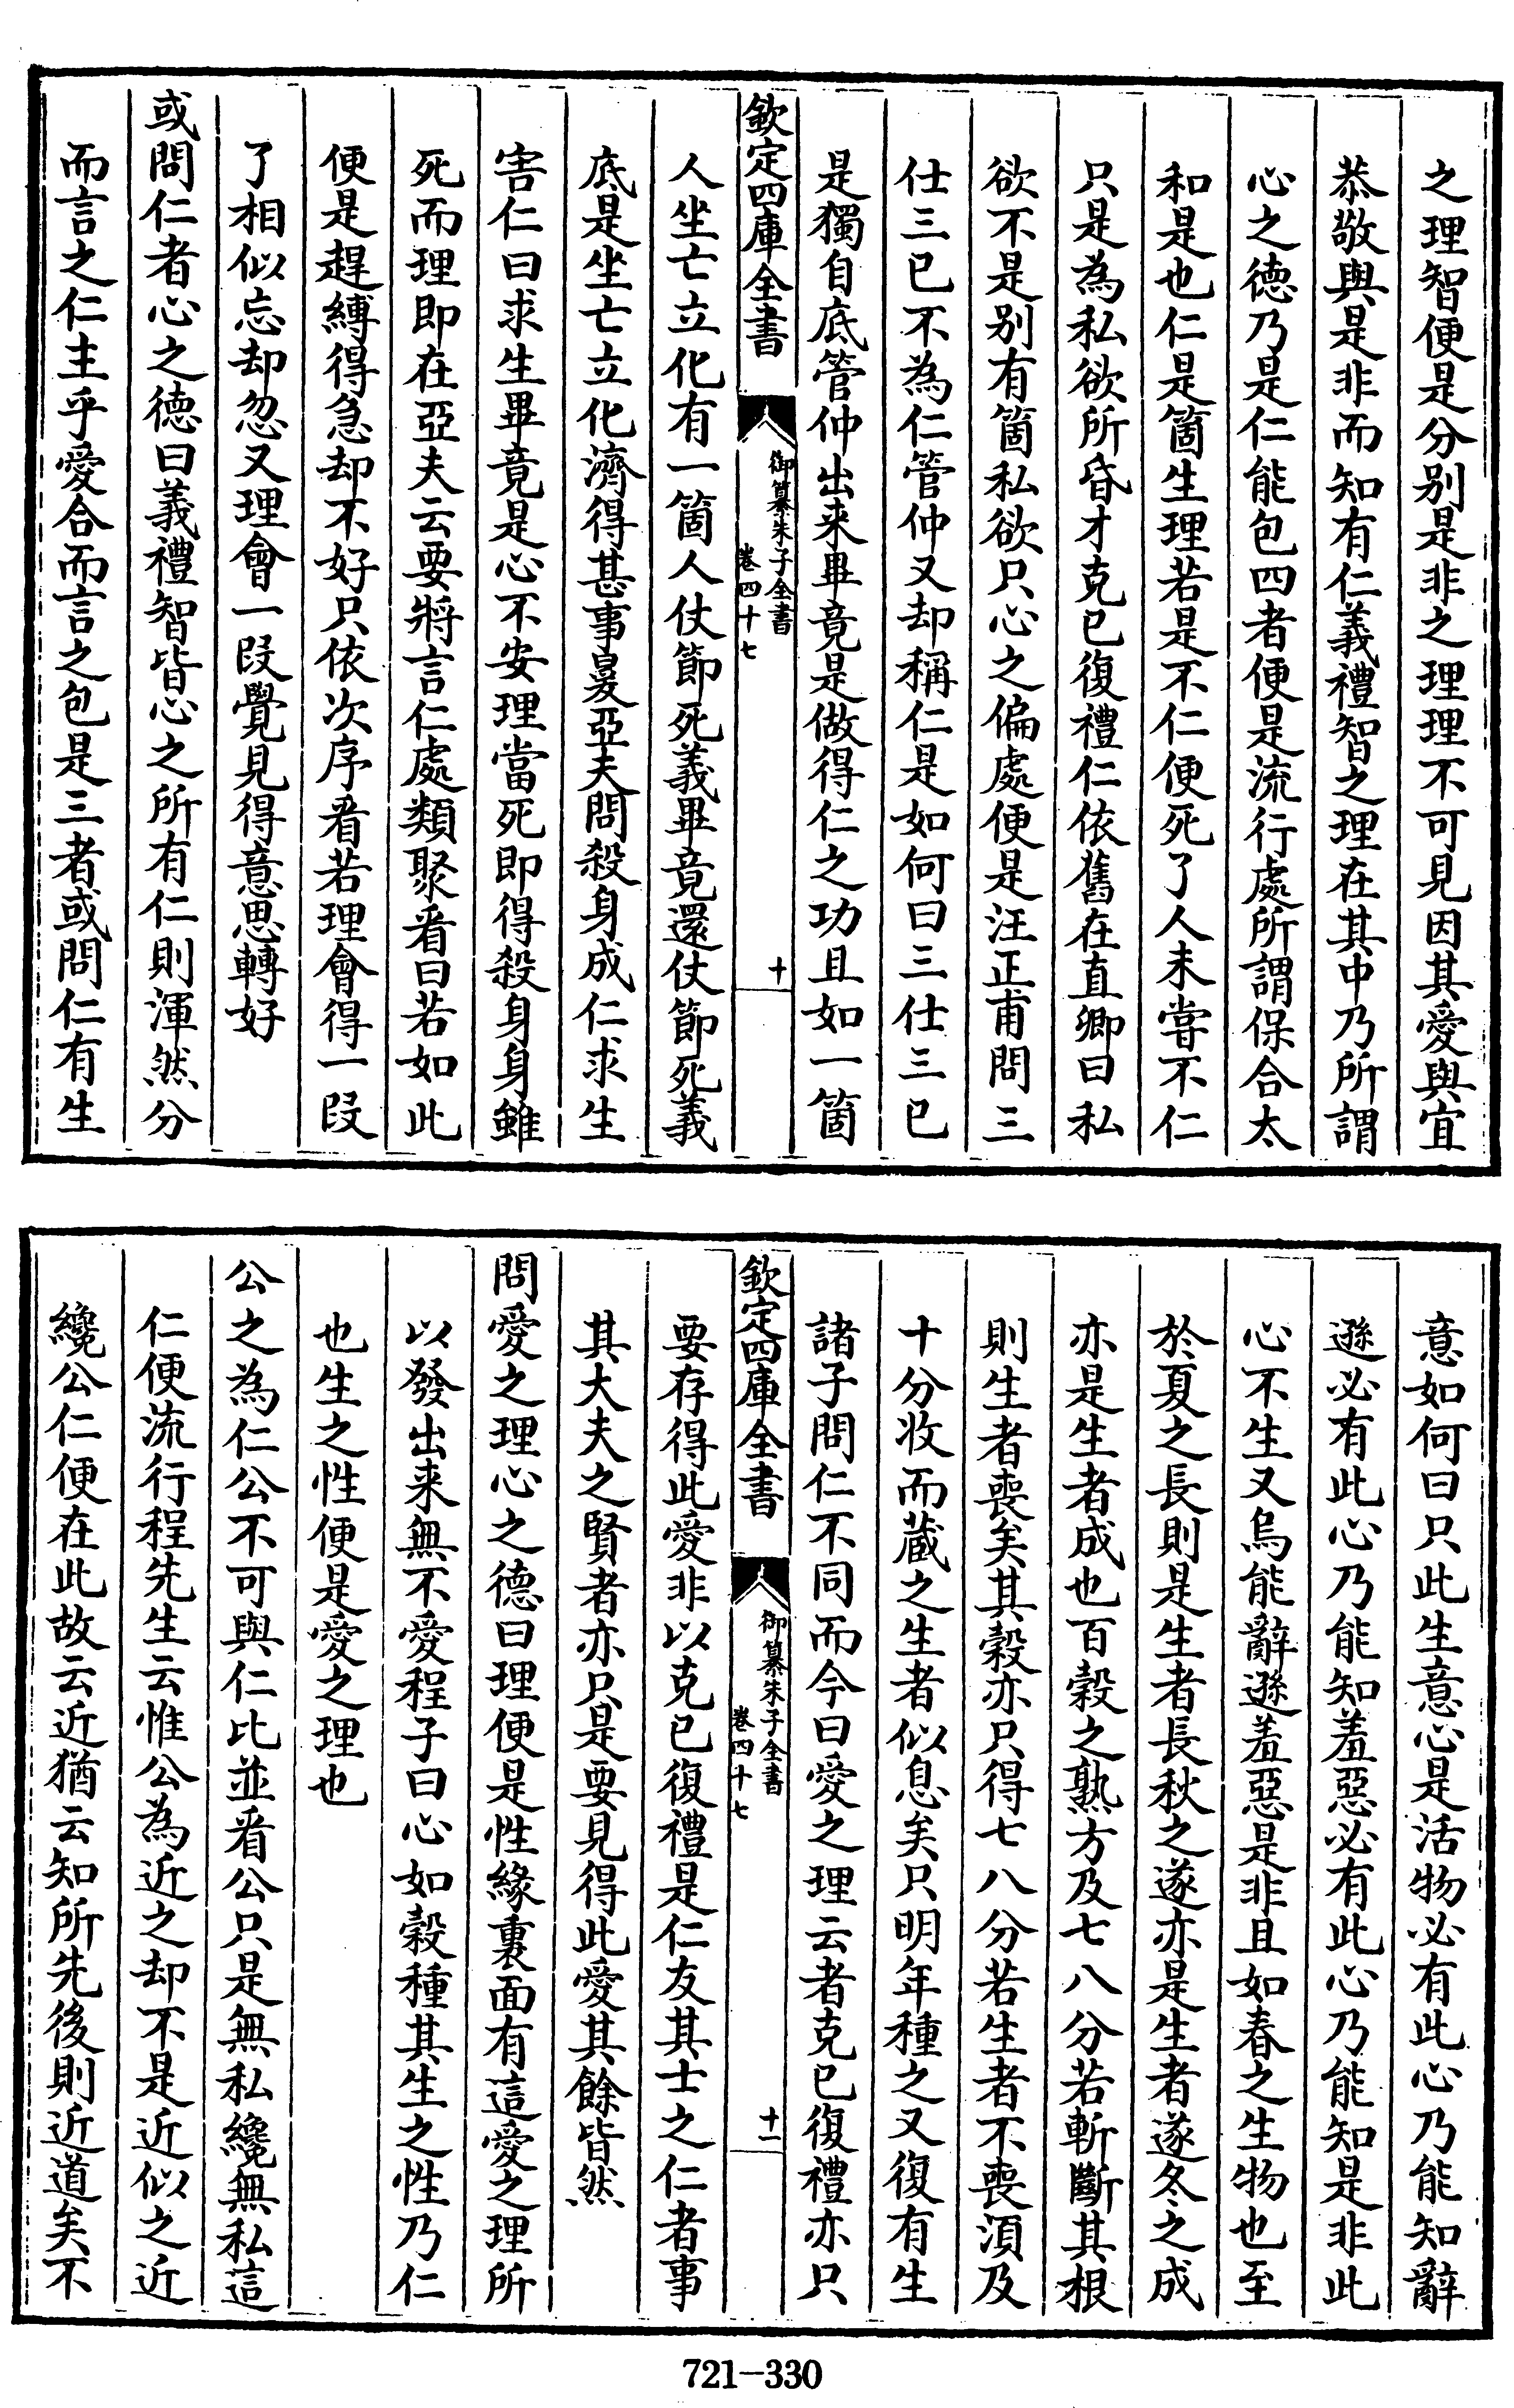 之理智便是分别是非之理理不可見因其愛與宜
恭敬與是非而知有仁義禮智之理在其中乃所謂
心之德乃是仁能包四者便是流行處所謂保合太
和是也仁是箇生理若是不仁便死了人未嘗不仁
只是為私欲所昏才克已復禮仁依舊在直卿曰私
欲不是别有箇私欲只心之偏處便是汪正甫問三
仕三已不為仁管仲又却稱仁是如何曰三仕三已
是獨自底管仲出来畢竟是做得仁之功且如一箇
欽定四庫全書
御纂朱子全書
卷四十七
十
人坐亡立化有一箇人仗節死義畢竟還仗節死義
底是坐亡立化濟得甚事㬰亞夫問殺身成仁求生
害仁曰求生畢竟是心不安理當死即得殺身身雖
死而理即在亞夫云要將言仁處類聚看曰若如此
便是趕縛得急却不好只依次序看若理會得一段
了相似忘却忽又理會一段覺見得意思轉好
或問仁者心之德曰義禮智皆心之所有仁則渾然分
而言之仁主乎愛合而言之包是三者或問仁有生
意如何曰只此生意心是活物必有此心乃能知辭
遜必有此心乃能知羞惡必有此心乃能知是非此
心不生又烏能辭遜羞惡是非且如春之生物也至
於夏之長則是生者長秋之遂亦是生者遂冬之成
亦是生者成也百榖之熟方及七八分若斬斷其根
則生者喪矣其榖亦只得七八分若生者不喪湏及
十分收而藏之生者似息矣只明年種之又復有生
諸子問仁不同而今曰愛之理云者克已復禮亦只
欽定四庫全書
御纂朱子全書
卷四十七
十一
要存得此愛非以克已復禮是仁友其士之仁者事
其大夫之賢者亦只是要見得此愛其餘皆然
問愛之理心之德曰理便是性緣裏面有這愛之理所
以發出来無不愛程子曰心如榖種其生之性乃仁
也生之性便是愛之理也
公之為仁公不可與仁比並看公只是無私纔無私這
仁便流行程先生云惟公為近之却不是近似之近
纔公仁便在此故云近猶云知所先後則近道矣不
721-330